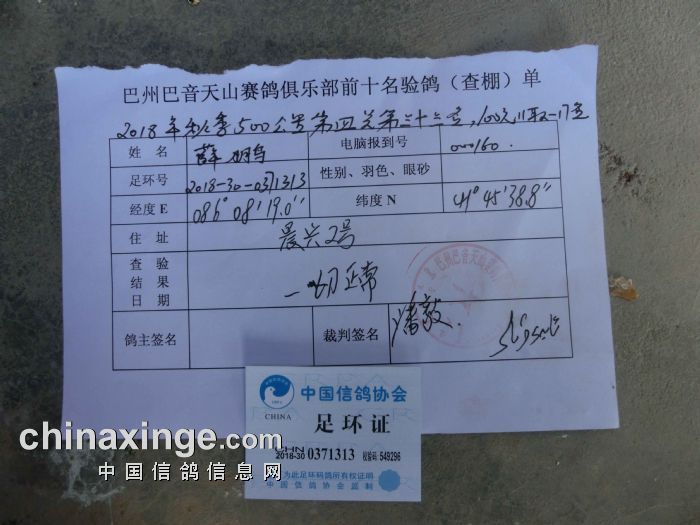 巴州巴音天山赛鸽俱乐部前十名验鸽（查棚）单
2018年秋季500公里第四关第三十三名,100元11取1-17名
姓 名 薛 电脑报到号 000160.
足环号 2018-30-0371313 性别、羽色、眼砂
经度E 086°08'19.0" 纬度N 41°45'38.8"
住 址 晨兴2号
查 验
结 果 一切正常
日 期
鸽主签名 裁判签名 潘毅.
巴州巴音天山赛鸽
中国信鸽协会
CHINA
足环证
2018-30 0371313 校验码: 549296
为此足环码鸽所有权证明
中国信鸽协会监制
chinaxinge.com
中国信鸽信息网